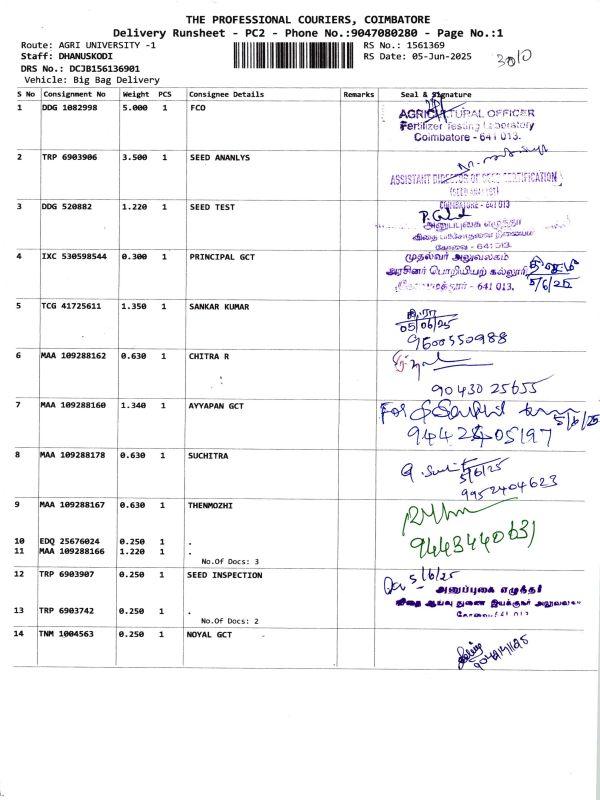 THE PROFESSIONAL COURIERS, COIMBATORE
Delivery Runsheet - PC2 - Phone No.:9047080280 - Page No.:1
Route: AGRI UNIVERSITY -1 RS No.: 1561369
Staff: DHANUSKODI RS Date: 05-Jun-2025
DRS No.: DCJB156136901
Vehicle: Big Bag Delivery
S No Consignment No Weight PCS Consignee Details Remarks Seal & Signature
1 DDG 1082998 5.000 1 FCO
AGRICULTURAL OFFICER
Fertilizer Testing Laboratory
Coimbatore - 641 013.
2 TRP 6903906 3.500 1 SEED ANANLYS
ASSISTANT DIRECTOR OF SEED CERTIFICATION
COIMBATORE - 641 013
3 DDG 520882 1.220 1 SEED TEST
அனுப்புகை எழுத்தர்
கோவை - 641 013.
4 IXC 530598544 0.300 1 PRINCIPAL GCT
முதல்வர் அலுவலகம்
அரசினர் பொறியியற் கல்லூரி
641 013.
5/6/25
5 TCG 41725611 1.350 1 SANKAR KUMAR
05/06/25
9600550988
6 MAA 109288162 0.630 1 CHITRA R
90430 25655
7 MAA 109288160 1.340 1 AYYAPAN GCT
For 5/6/25
8 MAA 109288178 0.630 1 SUCHITRA
5/6/25
9952404623
9 MAA 109288167 0.630 1 THENMOZHI
9443440631
10 EDQ 25676024 0.250 1 .
11 MAA 109288166 1.220 1 .
No.Of Docs: 3
12 TRP 6903907 0.250 1 SEED INSPECTION
5/6/25
அனுப்புகை எழுத்தர்
விதை ஆய்வு துணை இயக்குநர் அலுவலகம்
13 TRP 6903742 0.250 1 .
No.Of Docs: 2
14 TNM 1004563 0.250 1 NOYAL GCT